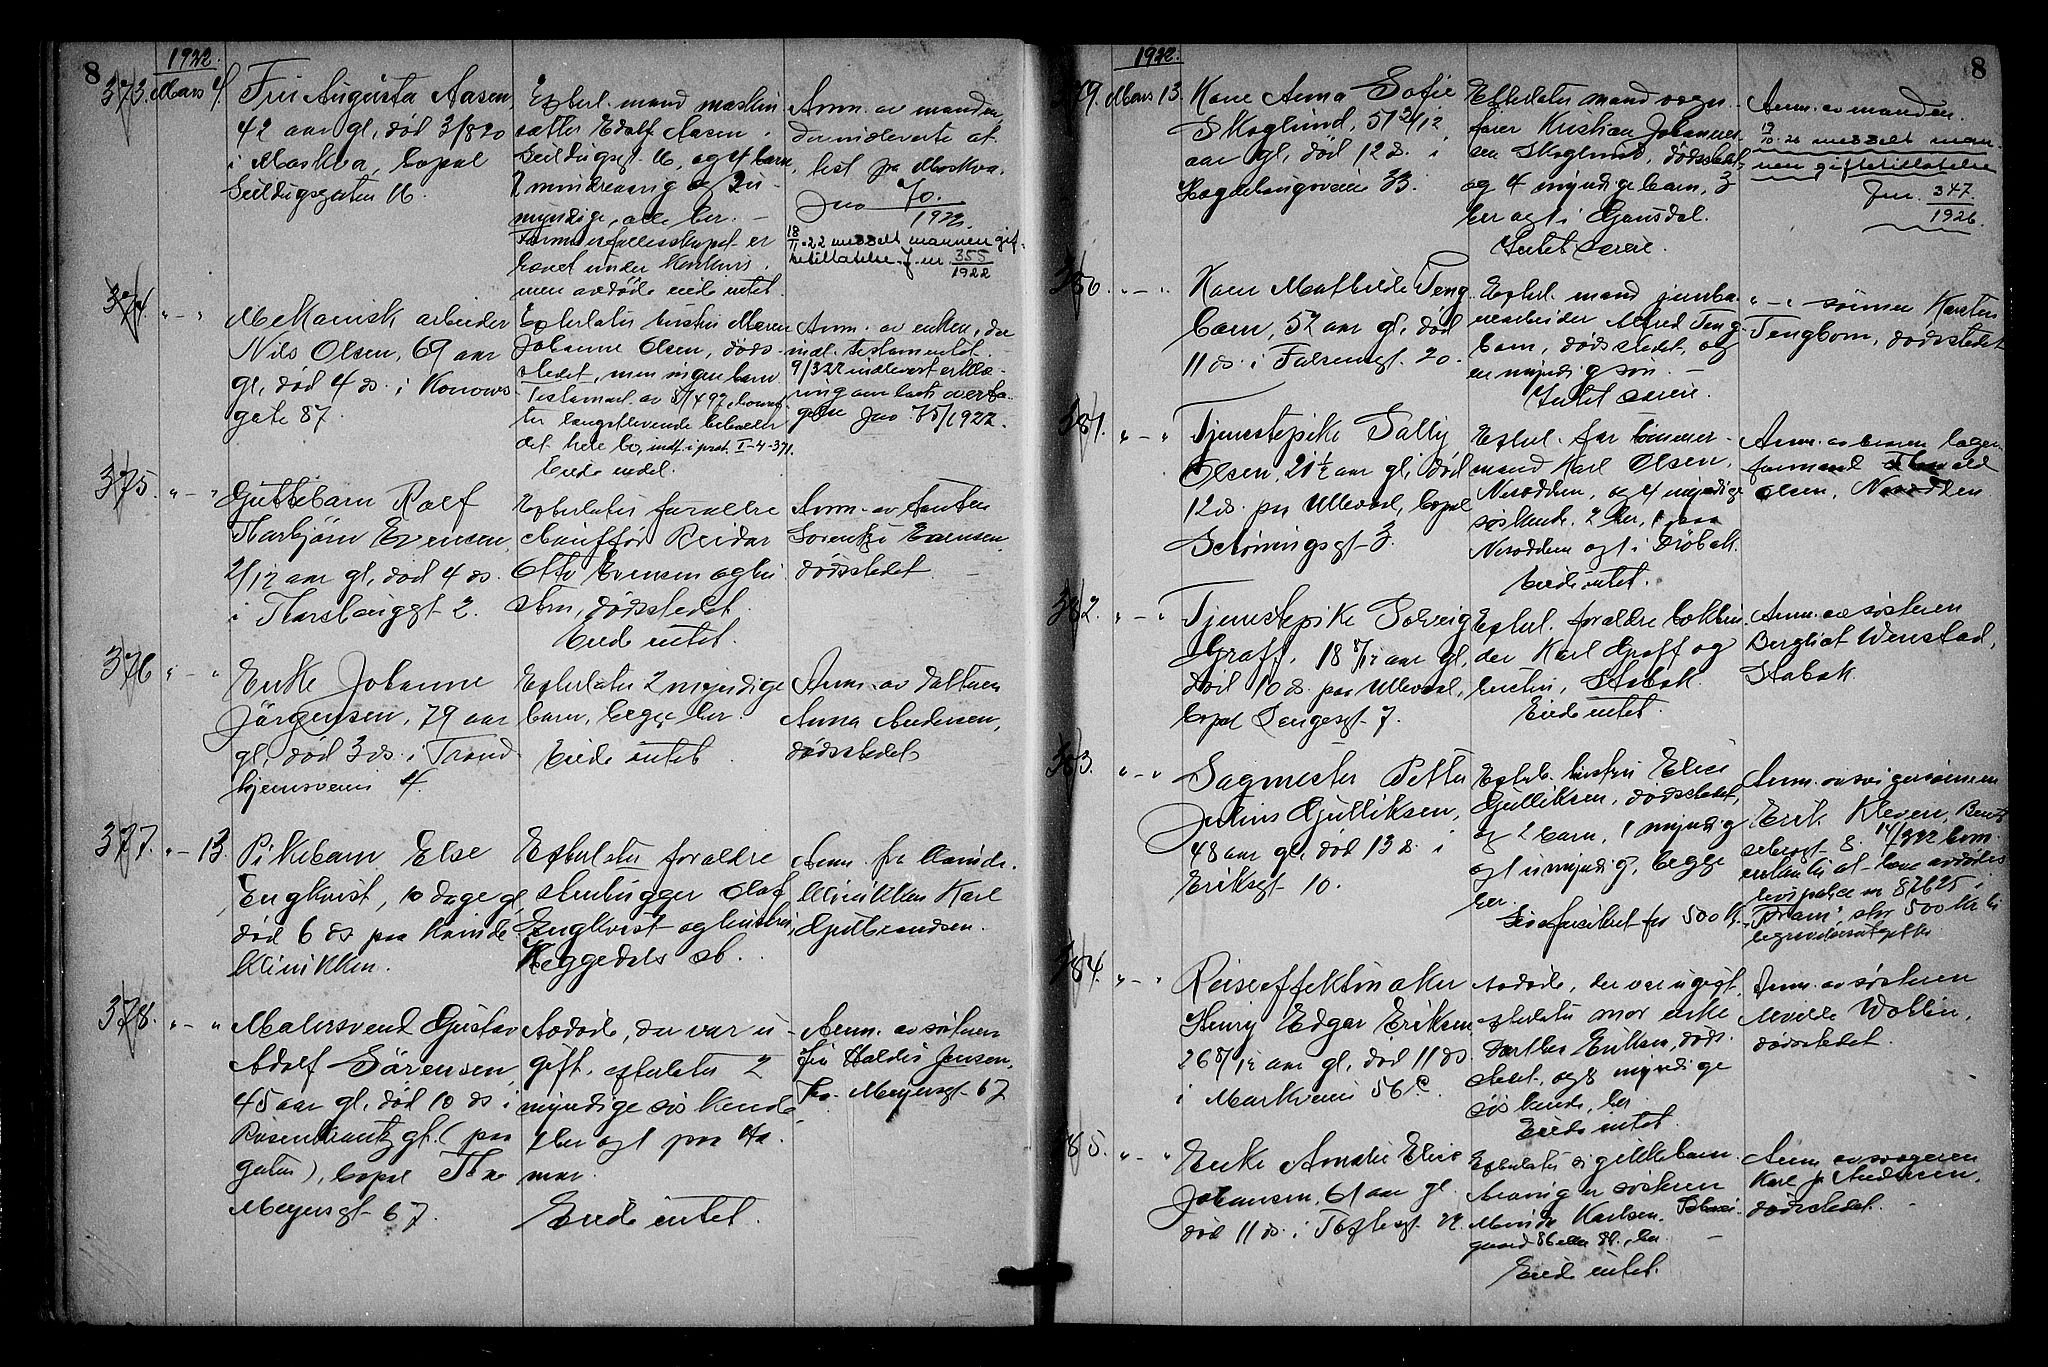 8
1922.
373. Mars 4.
Fru Augusta Aasen,
42 aar gl., død 3/8 20
i Moskva, bopæl
Seildugsgaten 16.
Efterl. mand maskin
sætter Edolf Aasen
Seildugsgt. 16, og 4 barn
2 mindreaarig og 2 u-
myndige, alle her. –
Formuesfællesskapet er
hævet under Konkurs,
men avdøde eiede intet.
Anm. av manden,
der indleverte at-
test fra Moskva.
Jno 70.
1922.
18/11-22 meddelt mannen gif-
tetillatelse. J. nr. 355
1922
374. " – "
Mekanisk arbeider
Nils Olsen, 69 aar
gl., død 4 ds. i Konows
gate 87.
Efterlater hustru Maren
Johanne Olsen, døds-
stedet, men ingen barn
Testament av 8/4 97, hvoref-
ter længstlevende beholder
det hele bo, indf. i prot. I-4-371.
Eiede endel.
Anm. av enken, der
indl. testamentet.
9/3 22 indlevert erklæ-
ring om boets overta-
gelse Jno 75/1922.
375. " – "
Guttebarn Rolf
Thorbjørn Evensen,
2/12 aar gl., død 4 ds.
i Thorshauggt. 2.
Efterlater forældre
chauffør Reidar
Otto Evensen og hu-
stru, dødsstedet.
Eiede intet.
Anm. av tanten
Evensen,
dødsstedet.
376 " – "
Enke Johanne
Jørgensen, 79 aar
gl., død 3 ds. i Trond-
hjemsveien 4.
Efterlater 2 myndige
barn, begge her.
Eiede intet.
Anm. av datteren
Anna Andersen,
dødsstedet
377. " – 13.
Pikebarn Else
Engkvist, 10 dage gl.,
død 6 ds. paa Kvinde-
klinikken.
Efterlater forældre
stenhugger Olaf
Engkvist og hustru,
Heggedals st.
Anm. fra Kvinde-
klinikken Karl
Gulbrandsen.
378. " – "
Malersvend Gustav
Adolf Sørensen,
45 aar gl., død 10 ds. i
Rosenkrantzgt. (paa
gaten), bopæl Thv.
Meyersgt. 67.
Avdøde, der var u-
gift, efterlater 2
myndige søskende
1 her og 1 paa Ha-
mar.
Eiede intet.
Anm. av søsteren
fru Haldis Jensen,
Thv. Meyersgt. 67
8
1922.
379. Mars 13.
Kone Anna Sofie
Skoglund, 51 2/12
aar gl., død 12 ds. i
33.
Efterlater mand vogn-
fører Kristian Johannes-
sen Skoglund, dødsstedet,
og 4 myndige barn, 3
her og 1 i Gausdal.
Intet særeie.
Anm. av manden.
19/10-26 meddelt man-
nen giftetillatelse
Jnr. 347
1926.
380. " – "
Kone Mathilde Teng-
bom, 52 aar gl., død
11 ds. i Falsensgt. 20.
Efterl. mand jernba-
nearbeider Alfred Teng-
bom, dødsstedet, og
en myndig søn. –
Intet særeie.
" – " sønnen Karsten
Tengbom, dødsstedet
381. " – "
Tjenestepike Solly
Olsen, 21½ aar gl., død
12 ds. paa Ullevaal, bopæl
Schøningsgt. 3.
Efterl. far tømmer-
mand Karl Olsen,
Nesodden, og 4 myndige
søskende. 2 her, 1 paa
Nesodden og 1 i Drøbak.
Eiede intet.
Anm. av broren lager-
formand Thorvald
Olsen, Nesodden.
382. " – "
Tjenestepike Solveig
Graff, 18 8/12 aar gl.,
død 10 ds. paa Ullevaal,
bopæl Sorgensgt. 7.
Efterl. forældre bokbin-
der Karl Graff og
hustru, Stabæk.
Eiede intet.
Anm. av søsteren
Bergliot Wenstad,
Stabæk.
383. " – "
Sagmester Petter
Julius Gulliksen,
48 aar gl., død 13 ds. i
Eriksgt. 10.
Efterl. hustru Elise
Gulliksen, dødsstedet,
og 2 barn, 1 myndig
og 1 umyndig, begge
her.
Livsforsikret for 500 Kr.
Anm. av svigersønnen
Erik Kleven,
14/3 22 bem.
enken til at hæve avdødes
livspolice nr 87625 i
"Fram", stor 500 Kr. til
begravelsesutgifter.
384. " – "
Reiseeffektmaker
Henry Edgar Eriksen
26 8/12 aar gl., død 11 ds.
i Markveien 56 c.
Avdøde, der var ugift,
efterlater mor enke
Dorthea Eriksen, døds-
stedet, og 8 myndige
søskende, her.
Eiede intet.
Anm. av søsteren
Wollin,
dødsstedet.
385. " – "
Enke Amalie Elise
Johansen, 61 aar gl.
død 11 ds. i Toftesgt.
Efterlater ei gikkebarn.
Arving er søsteren
Karlsen,
gaard 86 eller 88, her.
Eiede intet.
Anm. av svogeren
Karl J. Andersen,
dødsstedet.